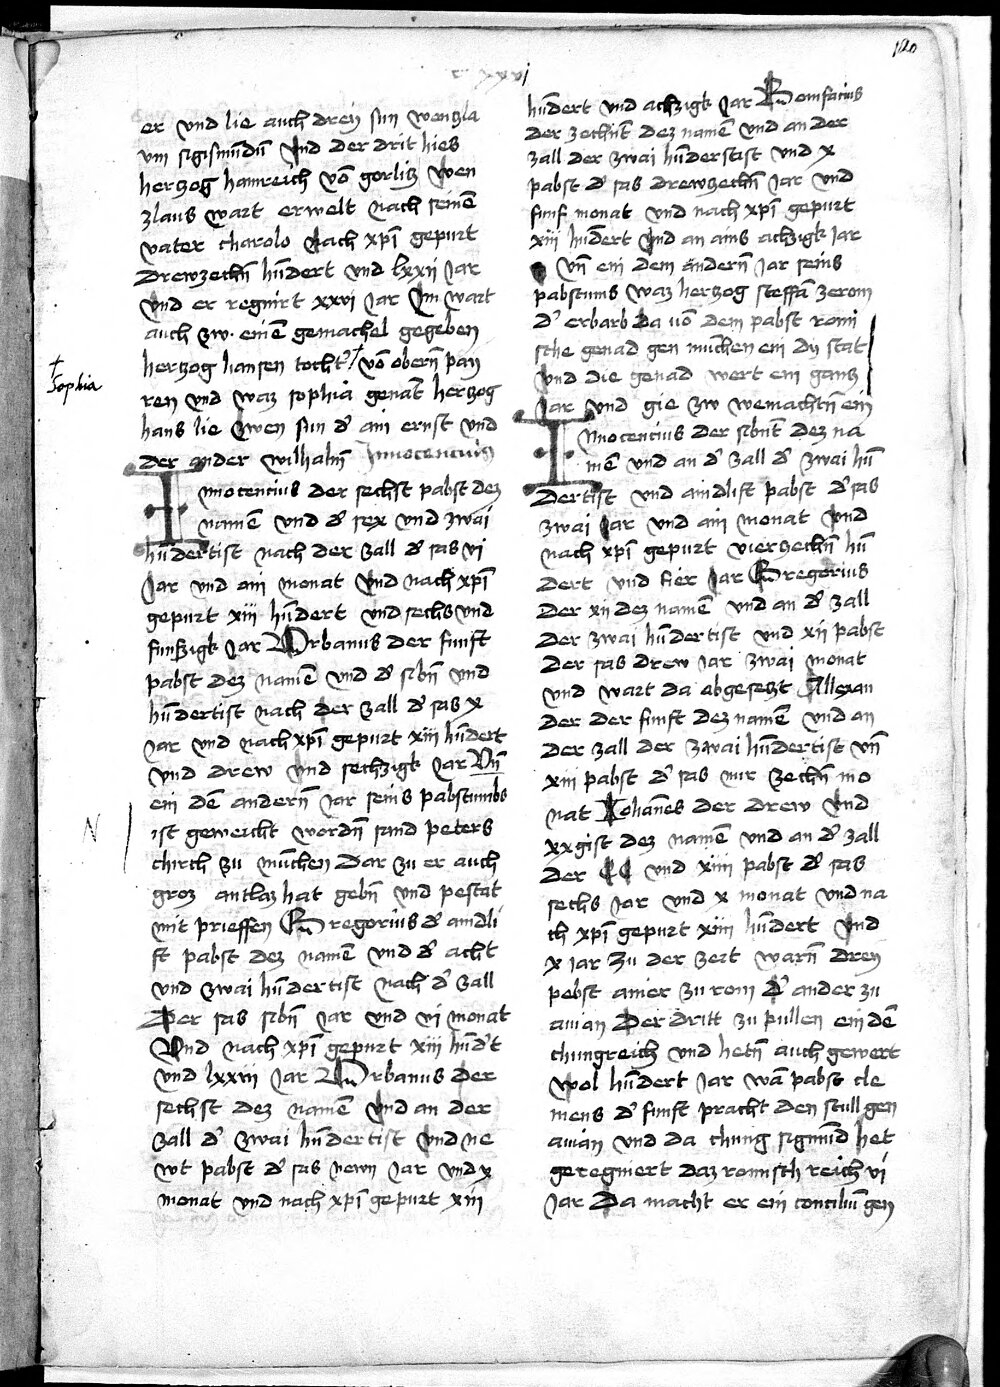 120
c xxvi
er vnd lie auch dreij sun wentzla
vm sigismūdū vnd der drit hies
hertzog hainreich võ gorlitz wen
zlaus wart erwelt nach seinē
vater charolo nach xpī gepurt
drewzechn̄ hūdert vnd lxxii jar
vnd er regnirt xxvi jar Im wart
auch zw einē gemachel gegeben
hertzog hansen tocht' + võ obern̄ pay
ren vnd waz sophia genāt hertzog
hans lie zwen sun d' ain ernst vnd
der ander wilhalm̄ Innocencius
+
Sophia
Innocencius der sechst pabst dez
namē vnd d' sex vnd zwai
hūdertist nach der zall d' sas vi
jar vnd ain monat vnd nach xpī
gepurt xiii hūdert vnd sechs vnd
funfzigk jar Vrbanus der funft
pabst dez namē vnd d' sibn̄ vnd
hūdertist nach der zall d' sas x
jar vnd nach xpī gepurt xiii hūdert
vnd drew vnd sechzigk jar Vn̄
ein dē andern̄ jar seins pabstumbs
ist geweicht wordn̄ sand peters
N
chirch zu mūchen dar zu er auch
groz antlaz hat gebn̄ vnd pestat
mit prieffen Gregorius d' aindli
ft pabst dez namē vnd d' acht
vnd zwai hūdertist nach d' zall
Der sas sibn̄ jar vnd vi monat
Vnd nach xpī gepurt xiii hūd't
vnd lxxiii jar Vrbanus der
sechst dez namē vnd an der
zall d' zwai hūdertist vnd ne
wt pabst d' sas newn jar vnd x
monat vnd nach xpī gepurt xiii
hūdert vnd achzigk jar Bonifacius
der zechnt dez namē vnd an der
zall der zwai hūderstist vnd x
pabst d' sas drewzechn̄ jar vnd
funf monat vnd nach xpī gepurt
xiii hūdert vnd an ains achzigk jar
vn̄ ein dem ändern̄ jar seins
pabstums waz hertzog steffā ze rom
d' erbarb da võ dem pabst romi
sche genad gen mūchen ein dij stat
vnd die genad wert ein gantz
jar vnd gie zw wemachtn̄ ein
Innocencius der sibnt dez na
mē vnd an d' zall d' zwai hū
dertist vnd aindlift pabst d' sas
zwai jar vnd ain monat vnd
nach xpī gepurt vierzechn̄ hū
dert vnd fier jar Gregorius
der xii dez namē vnd an d' zall
der zwai hūdertist vnd xii pabst
der sas drew jar zwai monat
vnd wart da abgesetzt Allexan
der der funft dez namē vnd an
der zall der zwai hūdertist vn̄
xiii pabst d' sas nur zechn̄ mo
nat Iohānes der drew vnd
xxgist dez namē vnd an d' zall
der CC vnd xiiii pabst d' sas
sechs jar vnd x monat vnd na
ch xpī gepurt xiiii hūdert vnd
x jar Zu der zeit warn̄ dreij
pebst ainer zu rom d' ander zu
auian Der dritt zu pullen ein dē
chungreich vnd hetn̄ auch gewert
wol hūdert jar wā pabst cle
mens d' funft pracht den stull gen
auian vnd da chunig sigmūd het
geregniert daz romisch reich vi
jar Da macht er ein conciliū gen